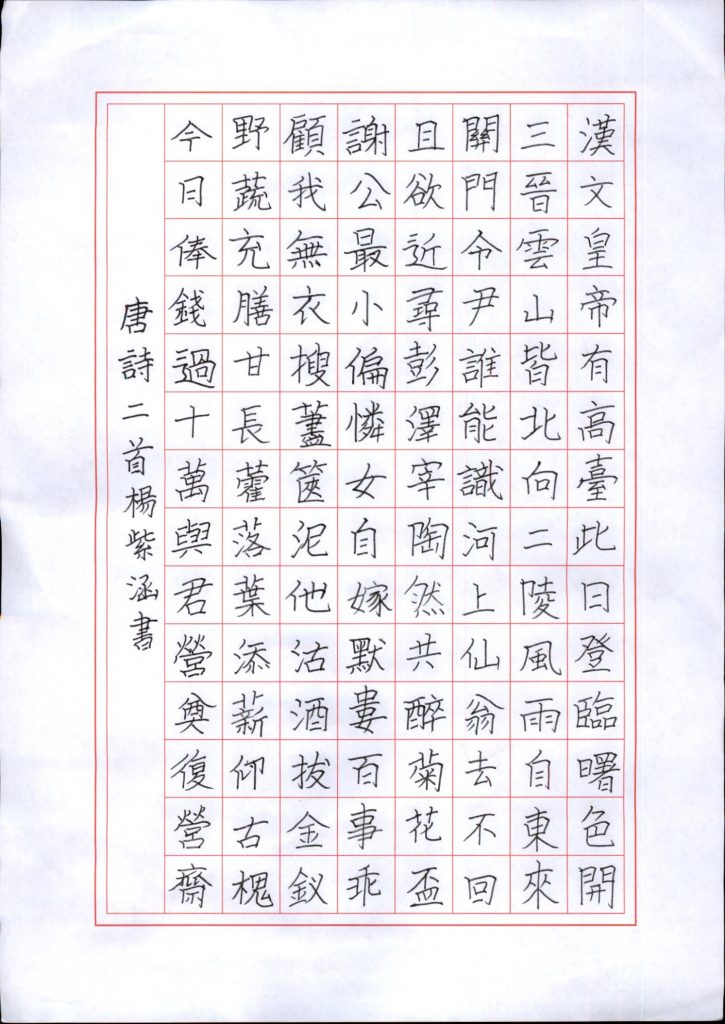 漢文皇帝有高臺此日登臨曙色開
三晉雲山皆北向二陵風雨自東來
關門令尹誰能識河上仙翁去不回
且欲近尋彭澤宰陶然共醉菊花盃
謝公最小偏憐女自嫁默婁百事乖
顧我無衣搜藎篋泥他沽酒拔金釵
野蔬充膳甘長藿落葉添薪仰古槐
今日俸錢過十萬與君營奠復營齋
唐詩二首楊紫涵書